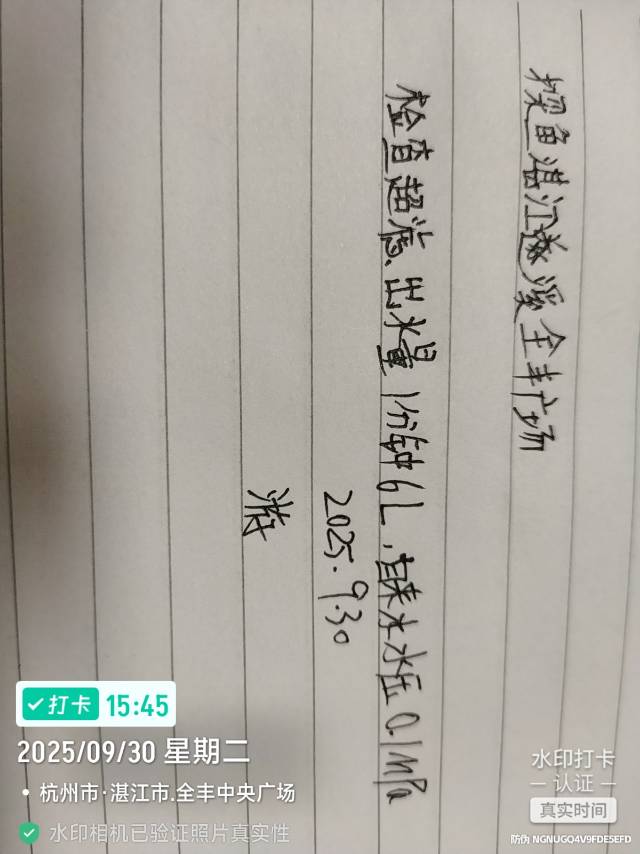 探鱼湛江遂溪全丰广场
检查超滤、出水量1分钟6L,自来水水压0.1MPa
2025.9.30
打卡 15:45
2025/09/30 星期二
杭州市·湛江市.全丰中央广场
水印相机已验证照片真实性
水印打卡
认证
真实时间
防伪 NGNUGQ4V9FDE5EFD